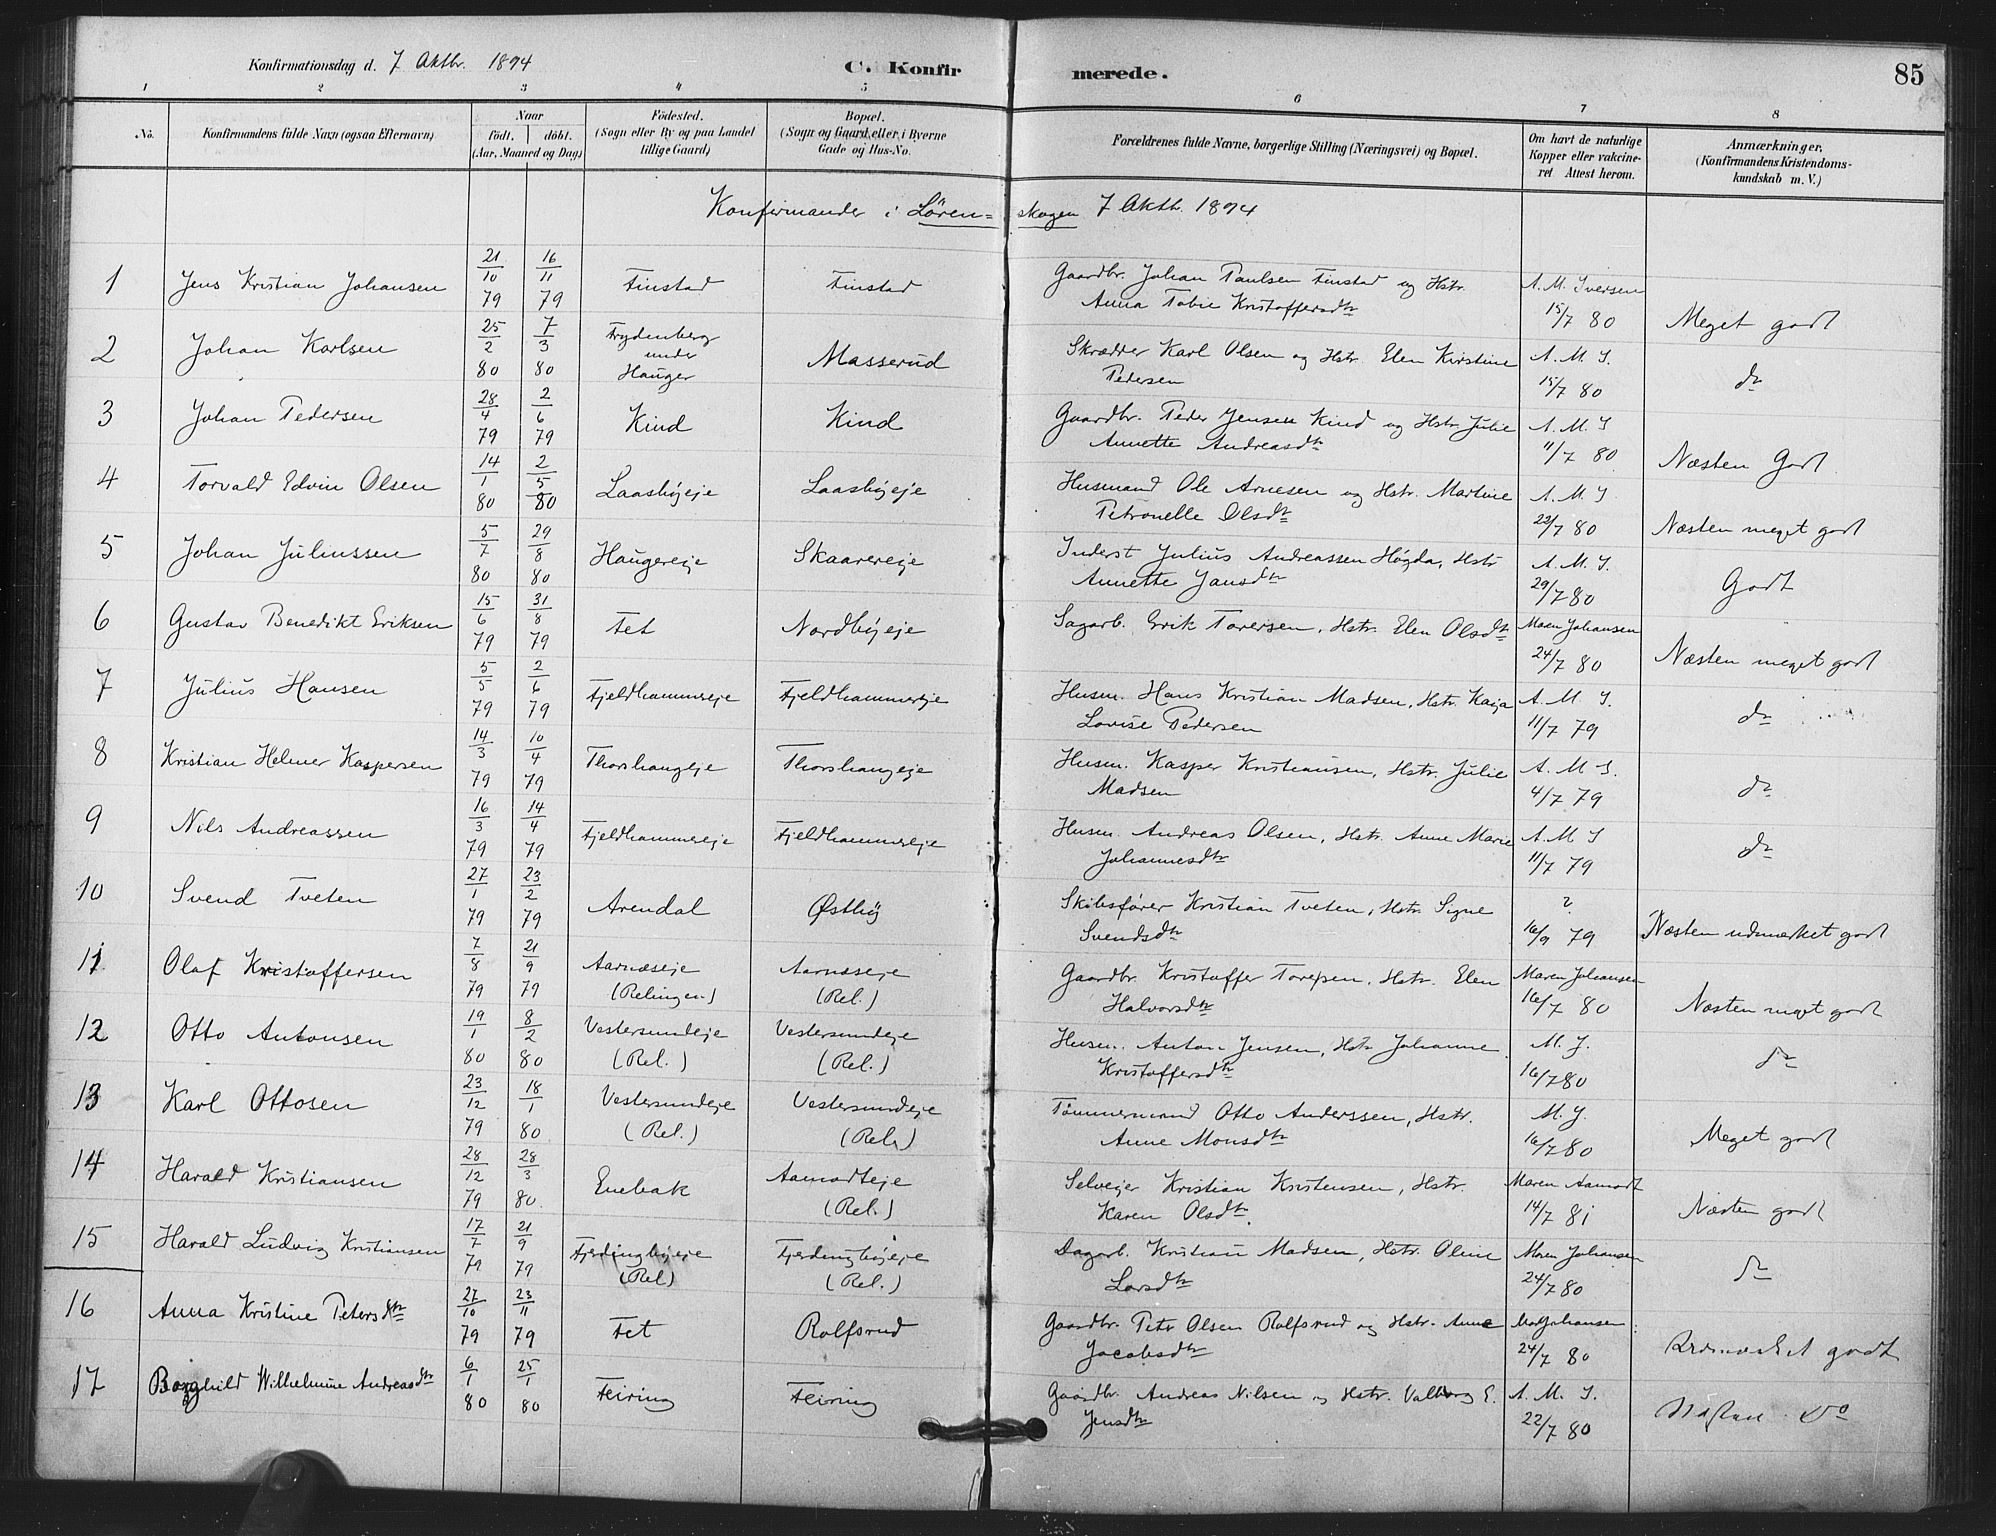 Konfirmationsdag d. 7 Oktbr. 1894
C. Konfirmerede.
85
1 2 3 4 5 6 7 8
No.
Konfirmandens fulde Navn (ogsaa Efternavn)
Naar
födt. döbt.
(Aar, Maaned og Dag)
Födested.
(Sogn eller By og paa Landet
tillige Gaard)
Bopæl.
(Sogn og Gaard, eller i Byerne
Gade og Hus-No.
Forældrenes fulde Navne, borgerlige Stilling (Næringsvei) og Bopæl.
Om havt de naturlige
Kopper eller vakcine-
ret Attest herom.
Anmærkninger,
(Konfirmandens Kristendoms-
kundskab m. V.)
Konfirmander i Lören=skogen 7 Oktb. 1894
1 Jens Kristian Johansen 21/10 79 16/11 79 Finstad Finstad Gaardbr. Johan Paulsen Finstad og Hstr. A. M. Iversen
Anna Tobie Kristoffersdtr 15/7 80 Meget godt
2 Johan Karlsen 25/2 80 7/3 80 Frydenberg under Hauger Masserud Skrædder Karl Olsen og Hstr. Elen Kirstine A. M. I.
Pedersen 15/7 80 do
3 Johan Pedersen 28/4 79 2/6 79 Kind Kind Gaardbr. Peder Jensen Kind og Hstr Julie A. M. I
Annette Andreasdtr 11/7 80 Næsten Godt
4 Torvald Edvin Olsen 14/1 80 2/5 80 Laasbyeje Laasbyeje Husmand Ole Arnesen og Hstr. Martine A. M. I
Petronelle Olsdtr 22/7 80 Næsten meget godt
5 Johan Juliussen 5/7 80 29/8 80 Haugereje Skaarereje Inderst Julius Andreassen Høgda, Hstr A. M. I.
Annette Jansdtr 29/7 80 Godt
6 Gustav Benedikt Eriksen 15/6 79 31/8 79 Fet Nordbyeje Sagarb. Erik Toversen, Hstr. Elen Olsdtr Maren Johansen
24/7 80 Næsten meget godt
7 Julius Hansen 5/5 79 2/6 79 Fjeldhammereje Fjeldhammereje Husm. Hans Kristian Madsen, Hstr. Kaja A. M. I.
Lovise Pedersen 11/7 79 do
8 Kristian Helmer Kaspersen 14/3 79 10/4 79 Thorshaugeje Thorshaugeje Husm. Kasper Kristiansen, Hstr. Julie A. M I.
Madsen 4/7 79 do
9 Nils Andreassen 16/3 79 14/4 79 Fjeldhammereje Fjeldhammereje Husm. Andreas Olsen, Hstr. Anne Marie A. M I
Johannesdtr 11/7 79 do
10 Svend Tveten 27/1 79 23/2 79 Arendal Østby Skibsfører Kristian Tveten, Hstr. Signe ?
Svendsdtr 16/9 79 Næsten udmærket godt
11 Olaf Kristoffersen 7/8 79 21/9 79 Aarnæseje (Relingen) Aarnæseje (Rel.) Gaardbr. Kristoffer Torgersen, Hstr. Elen Maren Johansen
Halvorsdtr 16/7 80 Næsten meget godt
12 Otto Antonsen 19/1 80 8/2 80 Vestersundeje (Rel.) Vestersundeje (Rel.) Husm. Anton Jensen, Hstr Johanne M. J.
Kristoffersdtr 16/7 80 do
13 Karl Ottosen 23/12 79 18/1 80 Vestersundeje (Rel.) Vestersundeje (Rel.) Tømmermand Otto Anderssen, Hstr. M. J.
Anne Monsdtr 16/7 80 Meget godt
14 Harald Kristiansen 28/12 79 28/3 80. Enebak Aamodteje (Rel.) Selvejer Kristian Kristensen, Hstr. Maren Aamodt
Karen Olsdtr. 14/7 81 Næsten godt
15 Harald Ludvig Kristiansen 17/7 79 21/9 79 Fjerdingbyeje (Rel) Fjerdingbyeje (Rel.) Dagarb. Kristian Madsen, Hstr. Oline Maren Johansen
Larsdtr 24/7 80 do
16 Anna Kristine Petersdtr 27/10 79 23/11 79 Fet Rolfsrud Gaardbr. Petr Olsen Rolfsrud og Hstr. Anne Mar Johansen
Jacobsdtr 24/7 80 Udmærket godt
17 Borghild Wilhelmine Andreasdtr 6/1 80 25/1 80 Feiring Feiring Gaardbr. Andreas Nilsen og Hstr. Valborg E. A. M. I.
Jensdtr 22/7 80 Næsten do